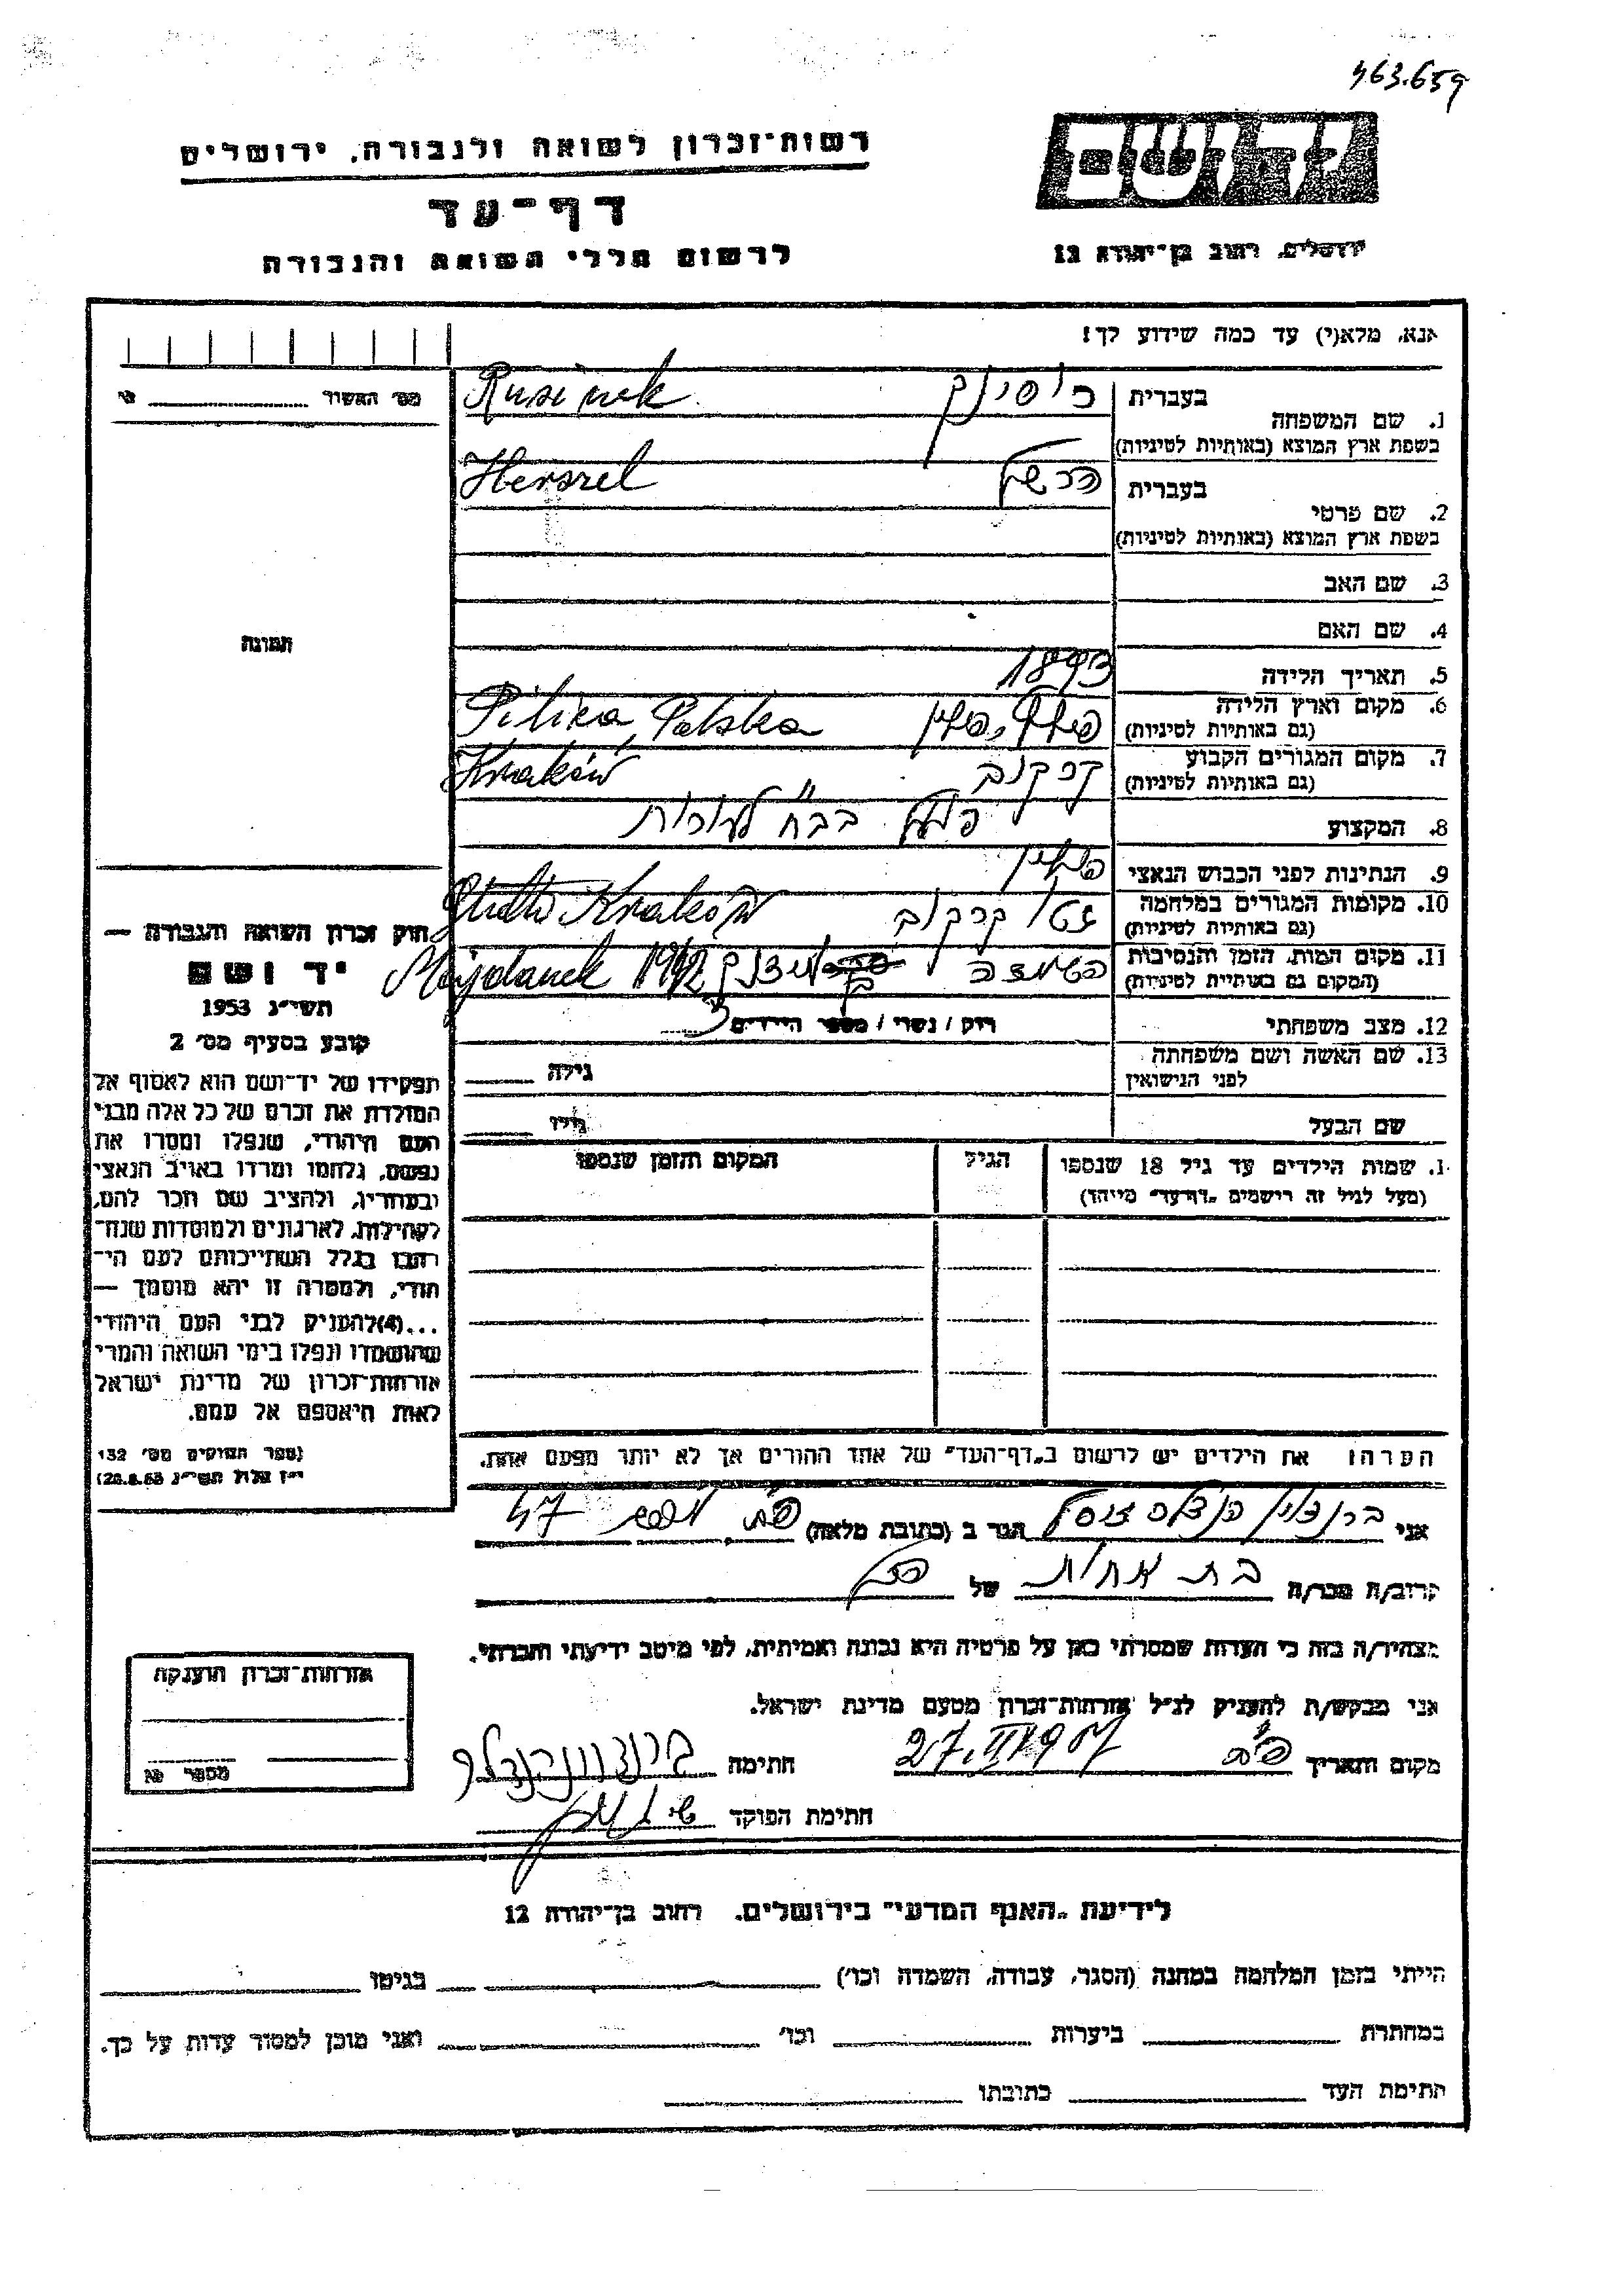 463.659
יד ושם
רשות־זכרון לשואה ולגבורה, ירושלים
דף־עד
לרשום חללי השואה והגבורה
ירושלים, רחוב בן־יהודה 12
אנא, מלא(י) עד כמה שידוע לך!
בעברית רוסינק Rusinek
1. שם המשפחה
בשפת ארץ המוצא (באותיות לטיניות)
בעברית הרשל Herszel
2. שם פרטי
בשפת ארץ המוצא (באותיות לטיניות)
3. שם האב
4. שם האם
5. תאריך הלידה 1893
6. מקום וארץ הלידה Pilica, Polska
(גם באותיות לטיניות)
7. מקום המגורים הקבוע קרקוב Kraków
(גם באותיות לטיניות)
8. המקצוע פועל בבח"ר לעורות
9. הנתינות לפני הכבוש הנאצי פולין
10. מקומות המגורים במלחמה גטו קרקוב Ghetto Kraków
(גם באותיות לטיניות)
11. מקום המות, הזמן והנסיבות Majdanek 1942
(המקום גם באותיות לטיניות)
12. מצב משפחתי רוק / נשוי / מספר הילדים 3
13. שם האשה ושם משפחתה גילה
לפני הנישואין
שם הבעל גילו
1. שמות הילדים עד גיל 18 שנספו הגיל המקום והזמן שנספו
(מעל לגיל זה רישמים „דף־עד" מיוחד)
הערה: את הילדים יש לרשום ב„דף־העד" של אחד ההורים אך לא יותר מפעם אחת.
מס' האשור
תמונה
חוק זכרון השואה והגבורה —
יד ושם
תשי"ג 1953
קובע בסעיף מס' 2
תפקידו של יד־ושם הוא לאסוף אל
המולדת את זכרם של כל אלה מבני
העם היהודי, שנפלו ומסרו את
נפשם, נלחמו ומרדו באויב הנאצי
ובעוזריו, ולהציב שם וזכר להם,
לקהילות, לארגונים ולמוסדות שנח־
רבו בגלל השתייכותם לעם הי־
הודי, ולמטרה זו יהא מוסמך —
...(4)להעניק לבני העם היהודי
שהושמדו ונפלו בימי השואה והמרי
אזרחות־זכרון של מדינת ישראל
לאות היאספם אל עמם.
(ספר החוקים מס' 132
י"ז אלול תשי"ג 28.8.53)
אני הגר ב (כתובת מלאה) 47
קרוב/ה מכר/ה בת אחות של הנ"ל
מצהיר/ה בזה כי העדות שמסרתי כאן על פרטיה היא נכונה ואמיתית, לפי מיטב ידיעתי והכרתי.
אני מבקש/ת להעניק לנ"ל אזרחות־זכרון מטעם מדינת ישראל.
מקום ותאריך חתימה
חתימת הפוקד
אזרחות־זכרון הוענקה
מספר
לידיעת „האגף המדעי" בירושלים. רחוב בן־יהודה 12
הייתי בזמן המלחמה במחנה (הסגר, עבודה, השמדה וכו') בגיטו
במחתרת ביערות וכו' ואני מוכן למסור עדות על כך.
חתימת העד כתובתו